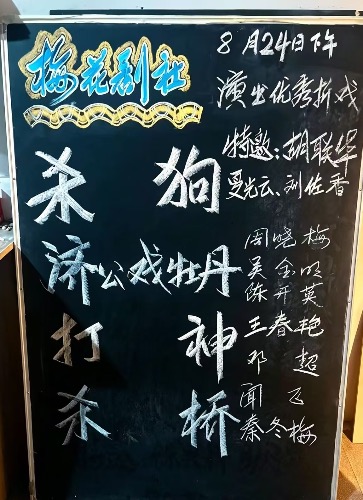 梅花剧社
8月24日下午
演出优秀折戏
特邀：胡联华
夏光云、刘佐香
杀狗
济公戏牡丹
打神
杀桥
周晓梅
吴金明
陈开英
王春艳
邓超
闻飞
秦冬梅